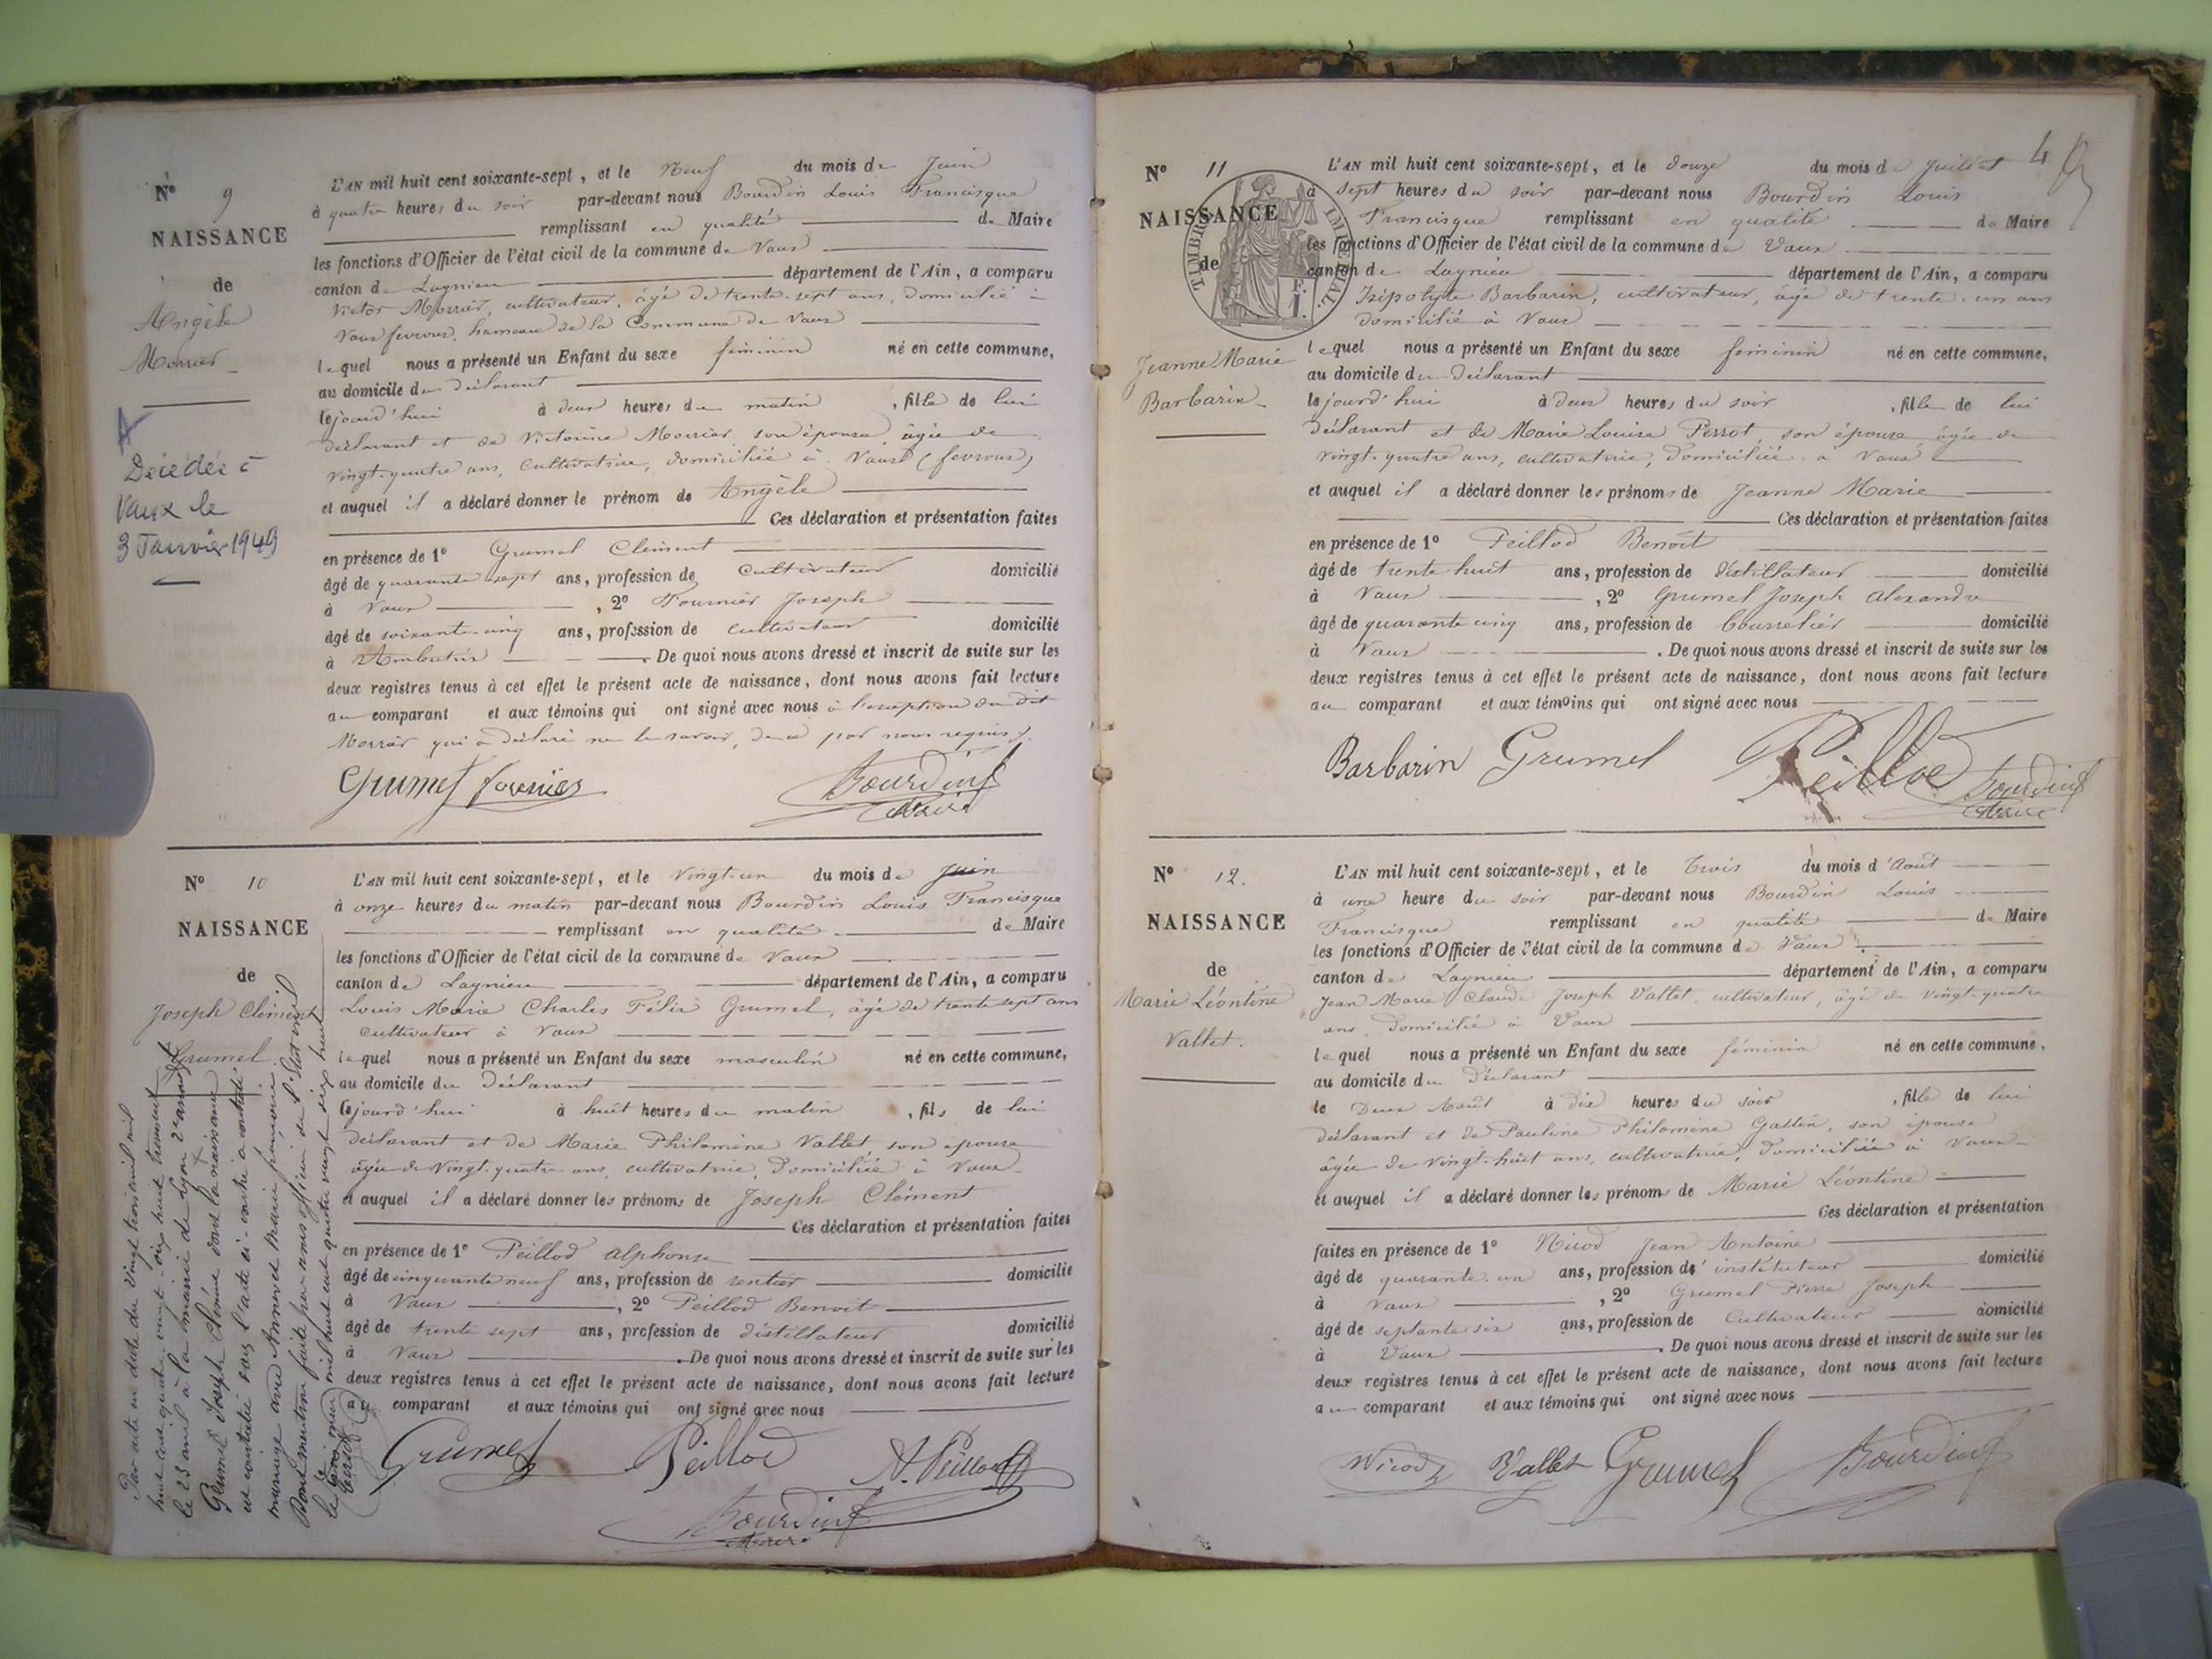 N° 9
NAISSANCE
de
Angèle
Morrier
Décédée à
Vaux le
3 Janvier 1949
L'AN mil huit cent soixante-sept, et le Neuf du mois de Juin
à quatre heures du soir par-devant nous Bourdin Louis Francisque
remplissant en qualité de Maire
les fonctions d'Officier de l'état civil de la commune de Vaux
canton de Lagnieu département de l'Ain, a comparu
Victor Morrier, cultivateur, âgé de trente-sept ans, domicilié à
Vaux fevroux, hameau de la Commune de Vaux
lequel nous a présenté un Enfant du sexe féminin né en cette commune,
au domicile du déclarant
cejourd'hui à deux heures du matin, fille de lui
déclarant et de Victorine Morrier son épouse, âgée de
vingt-quatre ans, cultivatrice, domiciliée à Vaux (fevroux)
et auquel il a déclaré donner le prénom de Angèle
Ces déclaration et présentation faites
en présence de 1° Grumel Clément
âgé de quarante sept ans, profession de Cultivateur domicilié
à Vaux, 2° Fournier Joseph
âgé de soixante-cinq ans, profession de cultivateur domicilié
à Ambutrix. De quoi nous avons dressé et inscrit de suite sur les
deux registres tenus à cet effet le présent acte de naissance, dont nous avons fait lecture
au comparant et aux témoins qui ont signé avec nous à l'exception du dit
Morrier qui a déclaré ne le savoir, de ce par nous requis.
Grumel fournier Bourdin
Maire
N° 10
NAISSANCE
de
Joseph Clément
Grumel
Par acte en date du vingt trois avril mil
huit cent quatre vingt-dix huit
le 23 avril à la mairie de Lyon 2e arrondt
Grumel Joseph Clément dont la naissance
est constatée par l'acte ci-contre a contracté
mariage avec
Dont mention faite par nous officier de l'État civil
le mil huit cent quatre vingt-dix huit
L'AN mil huit cent soixante-sept, et le Vingt-un du mois de Juin
à onze heures du matin par-devant nous Bourdin Louis Francisque
remplissant en qualité de Maire
les fonctions d'Officier de l'état civil de la commune de Vaux
canton de Lagnieu département de l'Ain, a comparu
Louis Marie Charles Félix Grumel, âgé de trente sept ans
cultivateur à Vaux
lequel nous a présenté un Enfant du sexe masculin né en cette commune,
au domicile du déclarant
cejourd'hui à huit heures du matin, fils de lui
déclarant et de Marie Philomène Vallet, son épouse
âgée de vingt-quatre ans, cultivatrice, domiciliée à Vaux
et auquel il a déclaré donner les prénoms de Joseph Clément
Ces déclaration et présentation faites
en présence de 1° Peillod Alphonse
âgé de cinquante neuf ans, profession de rentier domicilié
à Vaux, 2° Peillod Benoit
âgé de trente sept ans, profession de distillateur domicilié
à Vaux. De quoi nous avons dressé et inscrit de suite sur les
deux registres tenus à cet effet le présent acte de naissance, dont nous avons fait lecture
au comparant et aux témoins qui ont signé avec nous
Grumel Peillod A. Peillod
Bourdin
Maire
4
N° 11
NAISSANCE
de
TIMBRE IMPÉRIAL
1 F.
Jeanne Marie
Barbarin
L'AN mil huit cent soixante-sept, et le douze du mois de Juillet
à sept heures du soir par-devant nous Bourdin Louis
Francisque remplissant en qualité de Maire
les fonctions d'Officier de l'état civil de la commune de Vaux
canton de Lagnieu département de l'Ain, a comparu
Hipolyte Barbarin, cultivateur, âgé de trente-un ans
domicilié à Vaux
lequel nous a présenté un Enfant du sexe féminin né en cette commune,
au domicile du déclarant
cejourd'hui à deux heures du soir, fille de lui
déclarant et de Marie Louise Perrot, son épouse, âgée de
vingt-quatre ans, cultivatrice, domiciliée à Vaux
et auquel il a déclaré donner les prénoms de Jeanne Marie
Ces déclaration et présentation faites
en présence de 1° Peillod Benoît
âgé de trente huit ans, profession de distillateur domicilié
à Vaux, 2° Grumel Joseph Alexandre
âgé de quarante cinq ans, profession de bourrelier domicilié
à Vaux. De quoi nous avons dressé et inscrit de suite sur les
deux registres tenus à cet effet le présent acte de naissance, dont nous avons fait lecture
au comparant et aux témoins qui ont signé avec nous
Barbarin Grumel Peillod Bourdin
Maire
N° 12.
NAISSANCE
de
Marie Léontine
Vallet.
L'AN mil huit cent soixante-sept, et le Trois du mois d'Août
à une heure du soir par-devant nous Bourdin Louis
Francisque remplissant en qualité de Maire
les fonctions d'Officier de l'état civil de la commune de Vaux
canton de Lagnieu département de l'Ain, a comparu
Jean Marie Claude Joseph Vallet, cultivateur, âgé de vingt-quatre
ans, domicilié à Vaux
lequel nous a présenté un Enfant du sexe féminin né en cette commune,
au domicile du déclarant
le Deux Août à dix heures du soir, fille de lui
déclarant et de Pauline Philomène Gallin, son épouse
âgée de vingt-huit ans, cultivatrice, domiciliée à Vaux
et auquel il a déclaré donner les prénoms de Marie Léontine
Ces déclaration et présentation
faites en présence de 1° Nicod Jean Antoine
âgé de quarante-un ans, profession d'instituteur domicilié
à Vaux, 2° Grumel Pierre Joseph
âgé de septante six ans, profession de Cultivateur domicilié
à Vaux. De quoi nous avons dressé et inscrit de suite sur les
deux registres tenus à cet effet le présent acte de naissance, dont nous avons fait lecture
au comparant et aux témoins qui ont signé avec nous
Nicod Vallet Grumel Bourdin